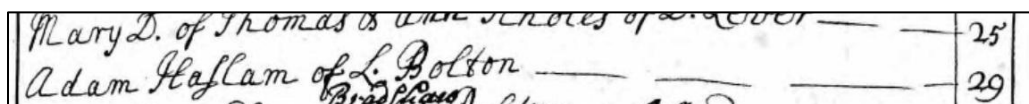 Mary D. of Thomas & Ann Scholes of D. Lever — — 25
Adam Haſlam of L. Bolton — — — — 29
Bradshaw